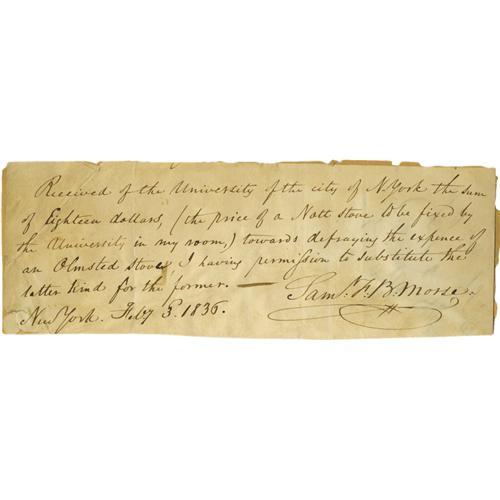 Received of the University of the city of N. York the sum
of Eighteen dollars, (the price of a Nott Stove to be fixed by
the University in my room,) towards defraying the expence of
an Olmsted stove, I having permission to substitute the
latter kind for the former. —
Saml. F. B. Morse.
New York. Feby 3. 1836.